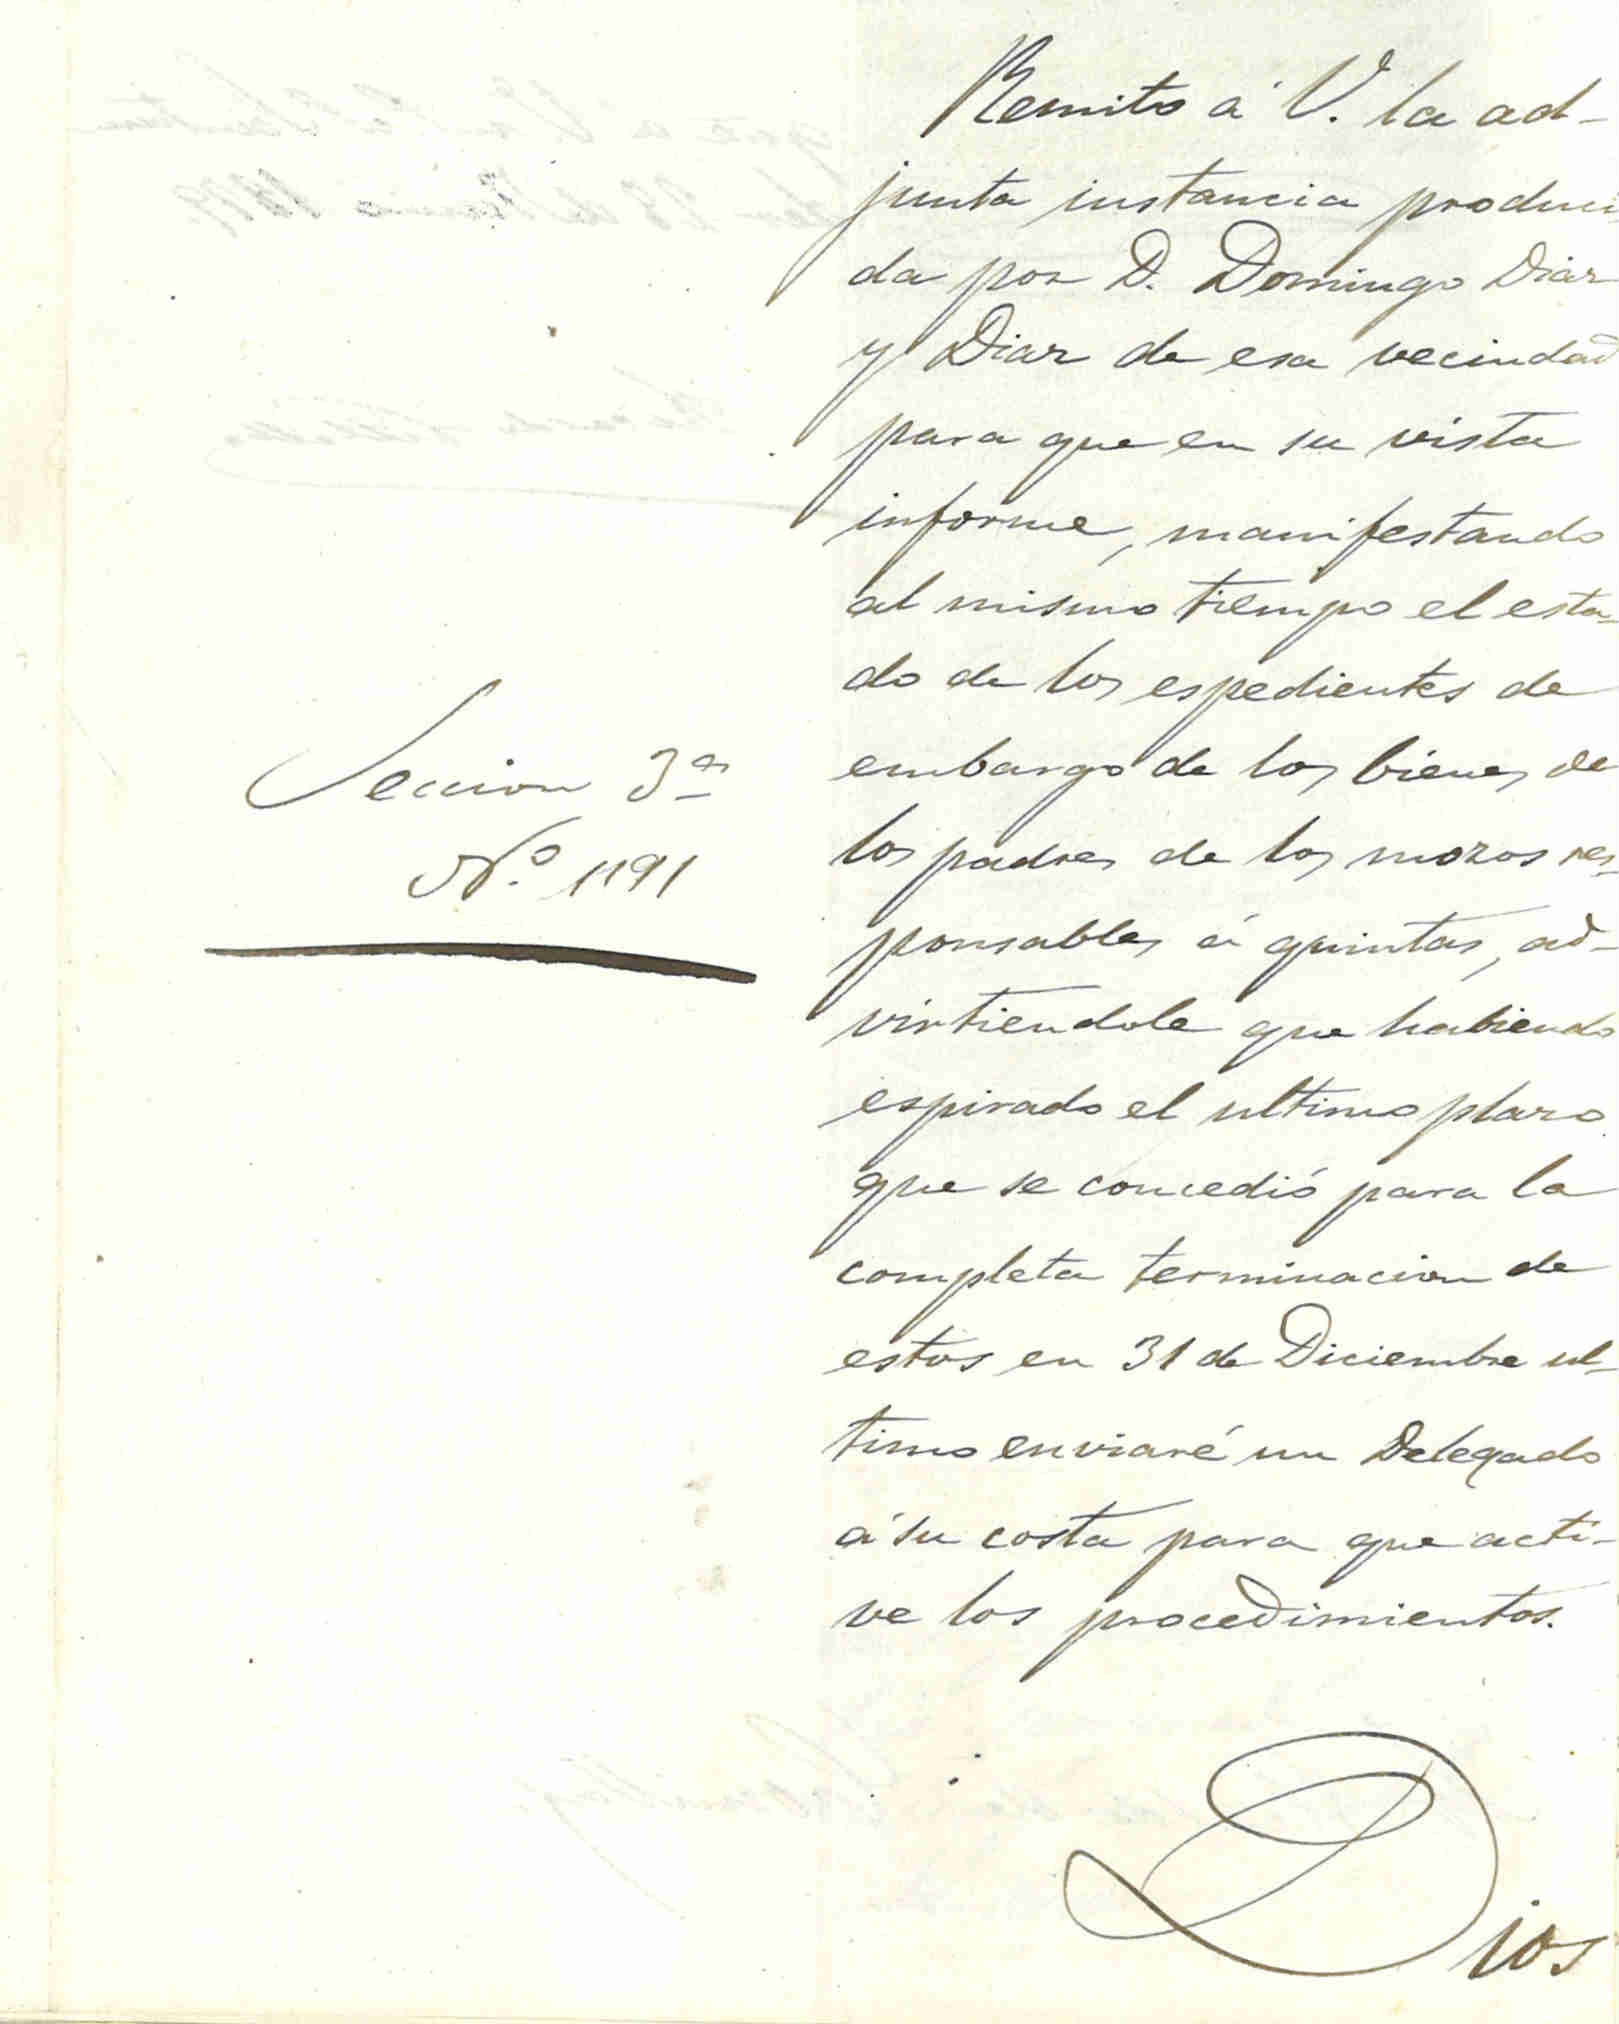 Remito á V. la ad-
junta instancia produci
da por D. Domingo Diaz
y Diaz de esa vecindad
para que en su vista
informe, manifestando
al mismo tiempo el esta-
do de los espedientes de
Seccion 3ª
embargo de los bienes de
Nº 1191
los padres de los mozos res-
ponsables á quintas, ad-
virtiendole que habiendo
espirado el ultimo plazo
que se concedió para la
completa terminacion de
estos en 31 de Diciembre ul-
timo enviaré un Delegado
á su costa para que acti-
ve los procedimientos.
Dios